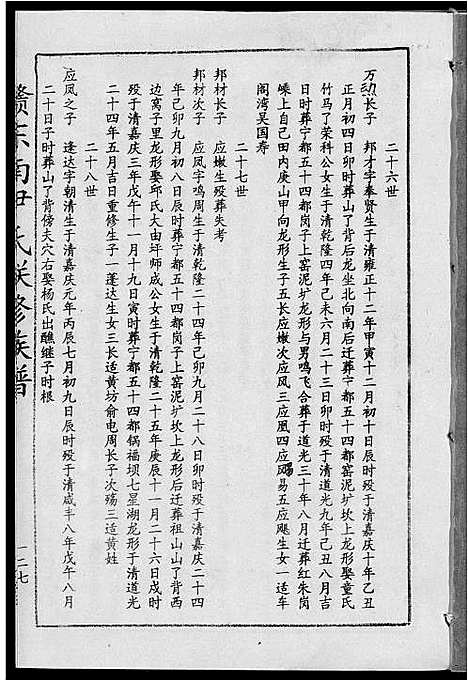 二十六世
万勐长子　邦才字奉贤生于清雍正十二年甲寅十二月初十日辰时殁于清嘉庆十年乙丑
正月初四日卯时葬山了背后龙坐北向南后迁葬宁都五十四都窑泥圹坎上龙形娶童氏
竹马了荣科公女生于清乾隆四年己未六月二十三日卯时殁于清道光九年己丑八月吉
日时葬宁都五十四都岗子上窑泥圹龙形与男鸣飞合葬于道光三十年八月迁葬红朱岗
嵊上自己田内庚山甲向龙形生子五长应嫩次应凤三应凰四应风易五应飓生女一适车
阁湾吴国寿
二十七世
邦材长子　应嫩生殁葬失考
邦材次子　应凤字鸣周生于清乾隆二十四年己卯九月二十八日卯时殁于清嘉庆二十四
年己卯九月初八日辰时葬宁都五十四都岗子上窑泥圹坎上龙形后迁葬祖山山了背西
边窝子里龙形娶邱氏大由圩师成公女生于清乾隆二十五年庚辰十一月二十六日戌时
殁于清嘉庆三年戊午十一月十九日寅时葬宁都五十四都锅福坝七星湖龙形于清道光
二十四年五月吉日重修生子一蓬达生女三长适黄坊俞电周长子次殇三适黄姓
二十八世
应凤之子　逢达字朝清生于清嘉庆元年丙辰七月初九日辰时殁于清咸丰八年戊午八月
二十日子时葬山了背傍夫穴右娶杨氏出醮继子时根
赣东南尹氏联修族谱
一二七